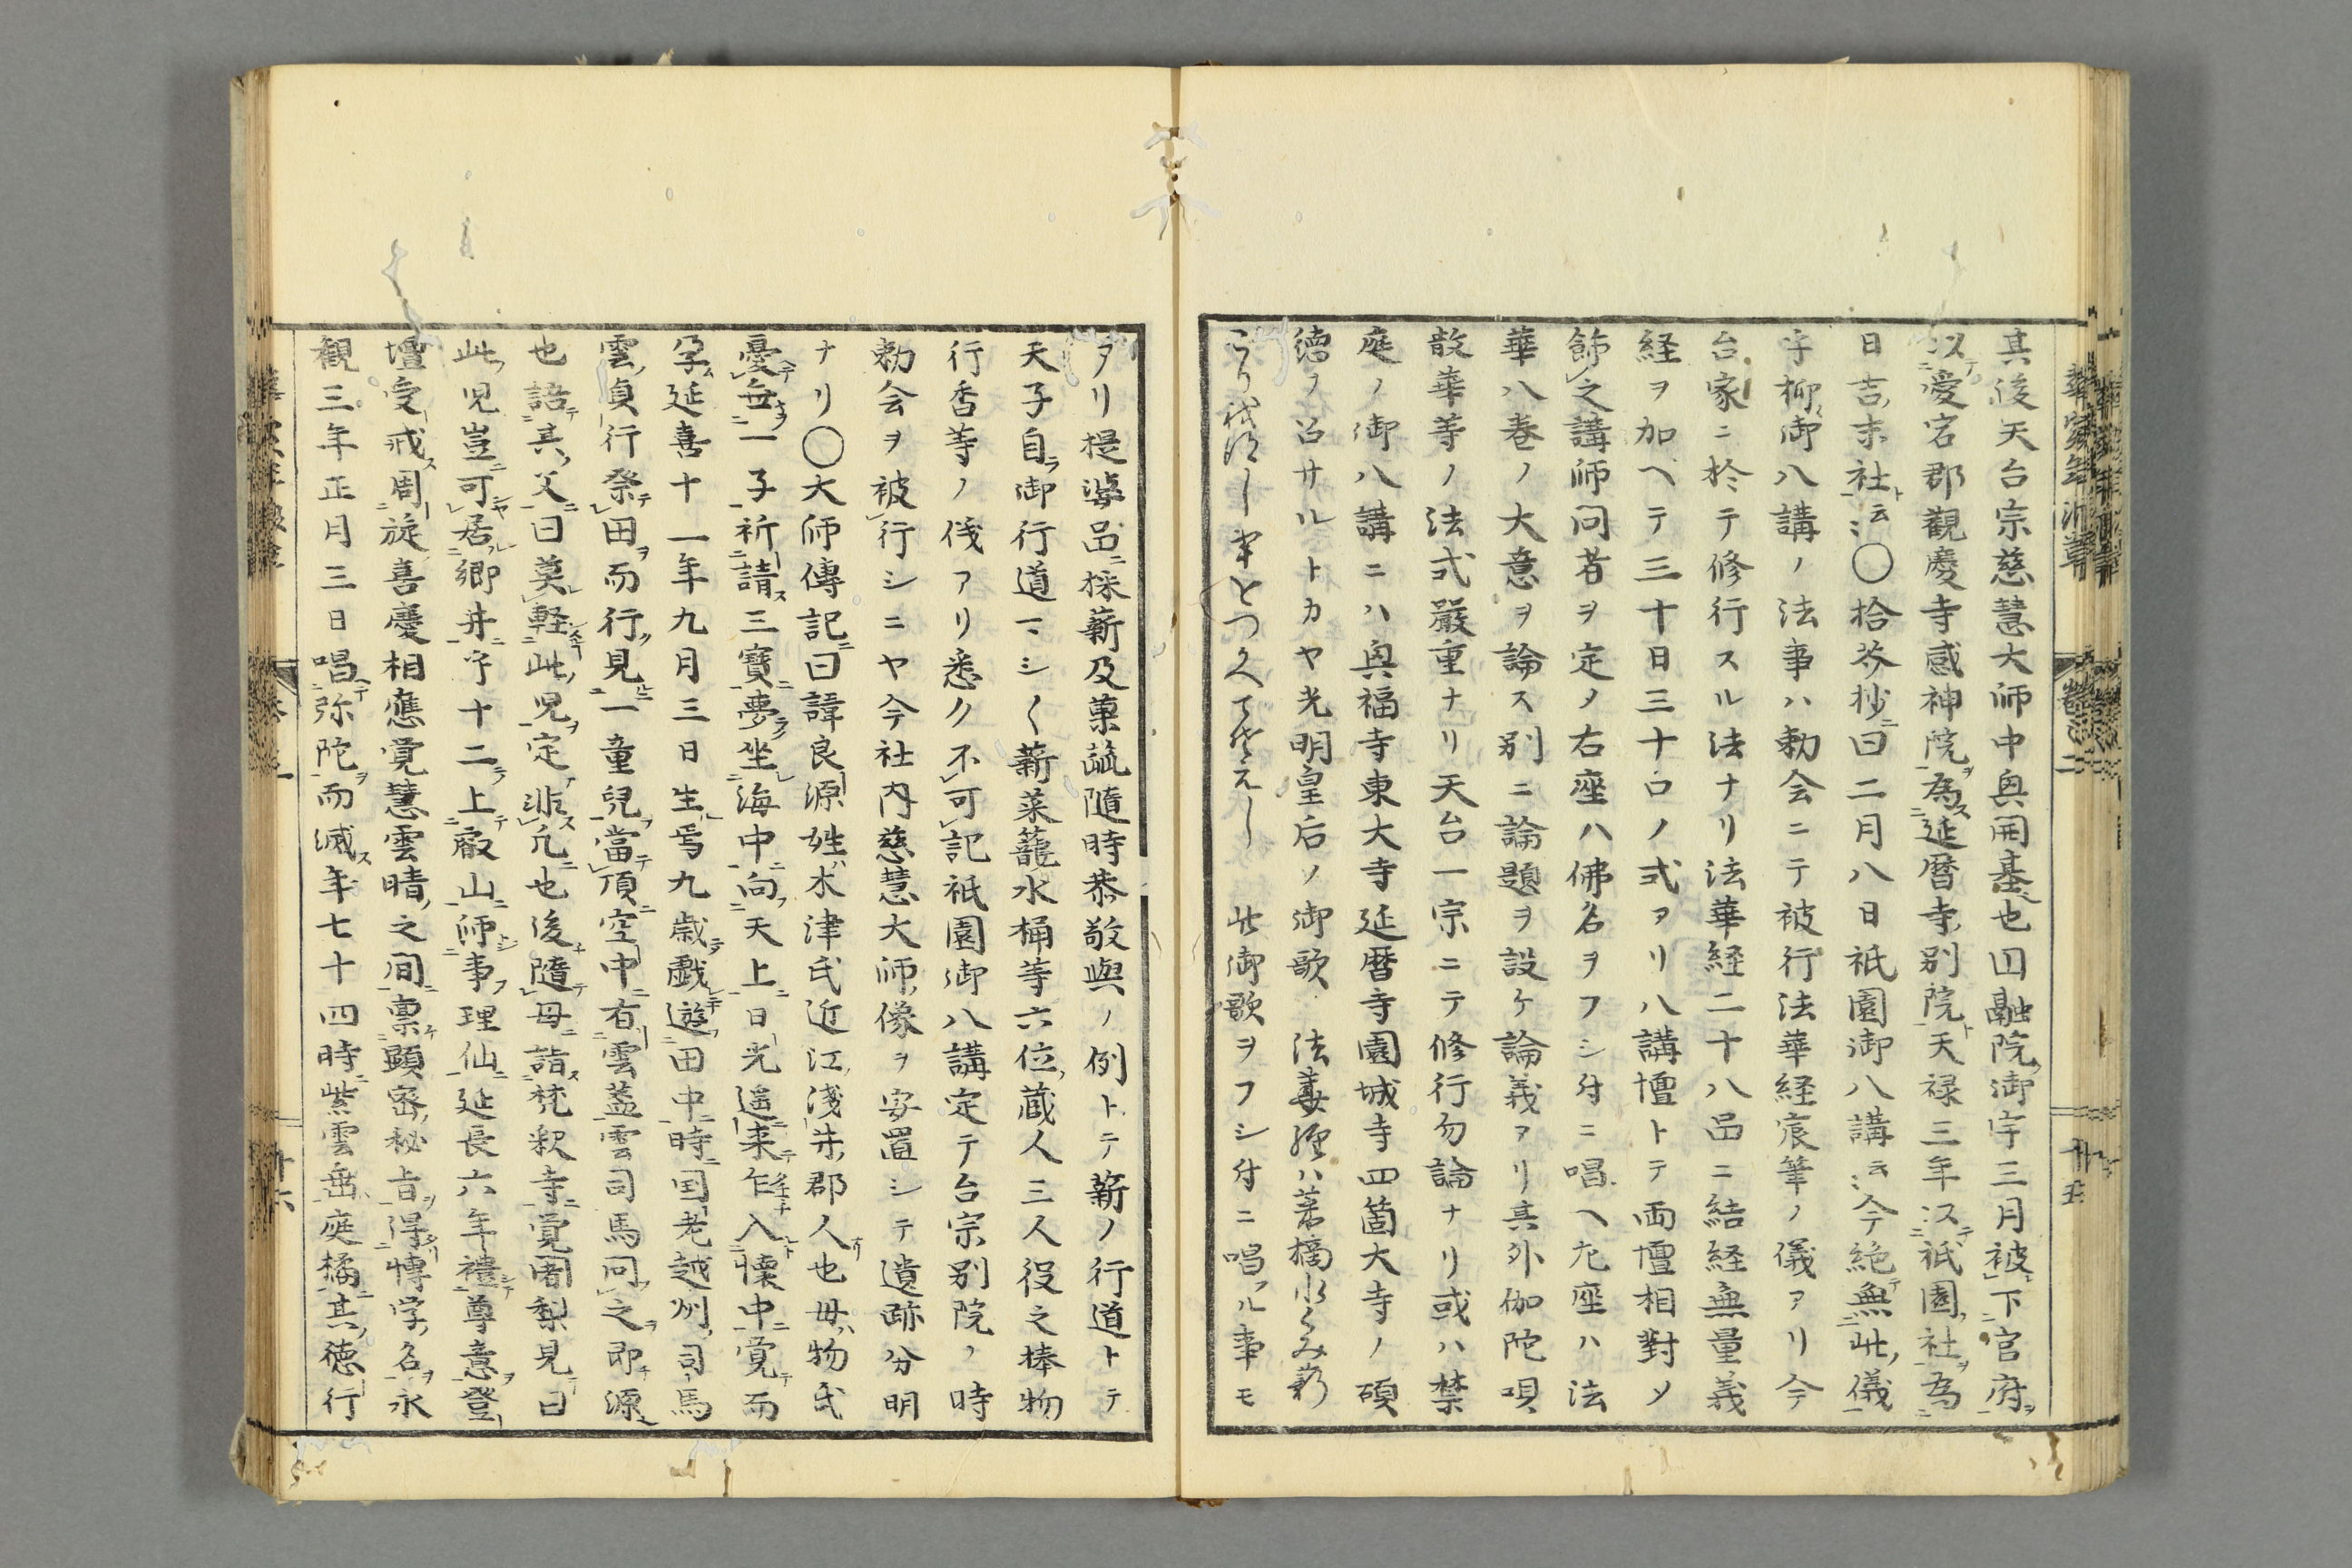 其後天台宗慈慧大師中興開基也円融院御宇三月被下官府
以愛宕郡觀慶寺感神院為延暦寺別院天禄三年以祇園社為
日吉末社云〻〇拾芥抄曰二月八日祇園御八講云〻今絶無此儀
乎柳御八講ノ法事ハ勅会ニテ被行法華経宸筆ノ儀アリ今
台家ニ於テ修行スル法ナリ法華経二十八品ニ結経無量義
経ヲ加ヘテ三十日三十口ノ式アリ八講壇トテ両壇相對メ
餝之講師問者ヲ定ノ右座ハ佛名ヲフシ付ニ唱ヘ左座ハ法
華八巻ノ大意ヲ論ス別ニ論題ヲ設ケ論義アリ其外伽陀唄
散華等ノ法式嚴重ナリ天台一宗ニテ修行勿論ナリ或ハ禁
庭ノ御八講ニハ興福寺東大寺延暦寺園城寺四箇大寺ノ碩
徳ヲ召サルトカヤ光明皇后ノ御歌 法華経ハ若摘水くみ薪
こり此御歌ヲフシ付ニ唱フル事モ
アリ提婆品採薪及菓蓏隨時恭敬與ノ例トテ薪ノ行道トテ
天子自御行道マシ〱薪菜籠水桶等六位蔵人三人役之棒物
行香等ノ儀アリ悉ク不可記祇園御八講定テ台宗別院ノ時
勅会ヲ被行シニヤ今社内慈慧大師像ヲ安置シテ遺跡分明
ナリ〇大師傳記曰諱良源姓木津氏近江淺井郡人也母物氏
憂無一子祈請三寶夢坐海中向天上日光遥来乍入懐中覚而
孕延喜十一年九月三日生焉九歳戯遊田中時国老越州司馬
雲貞行祭田而行見一童兒當頂空中有雲蓋雲司馬問之即源
也語其父曰莫軽此児定非凡也後隨母詣梵釈寺覚闍梨見曰
此児豈可居卿井乎十二上叡山師事理仙延長六年禮尊意登
壇受戒周旋喜慶相應覚慧雲晴之間禀顕密秘旨得博学名永
観三年正月三日唱弥陀而滅年七十四時紫雲垂庭橘其徳行